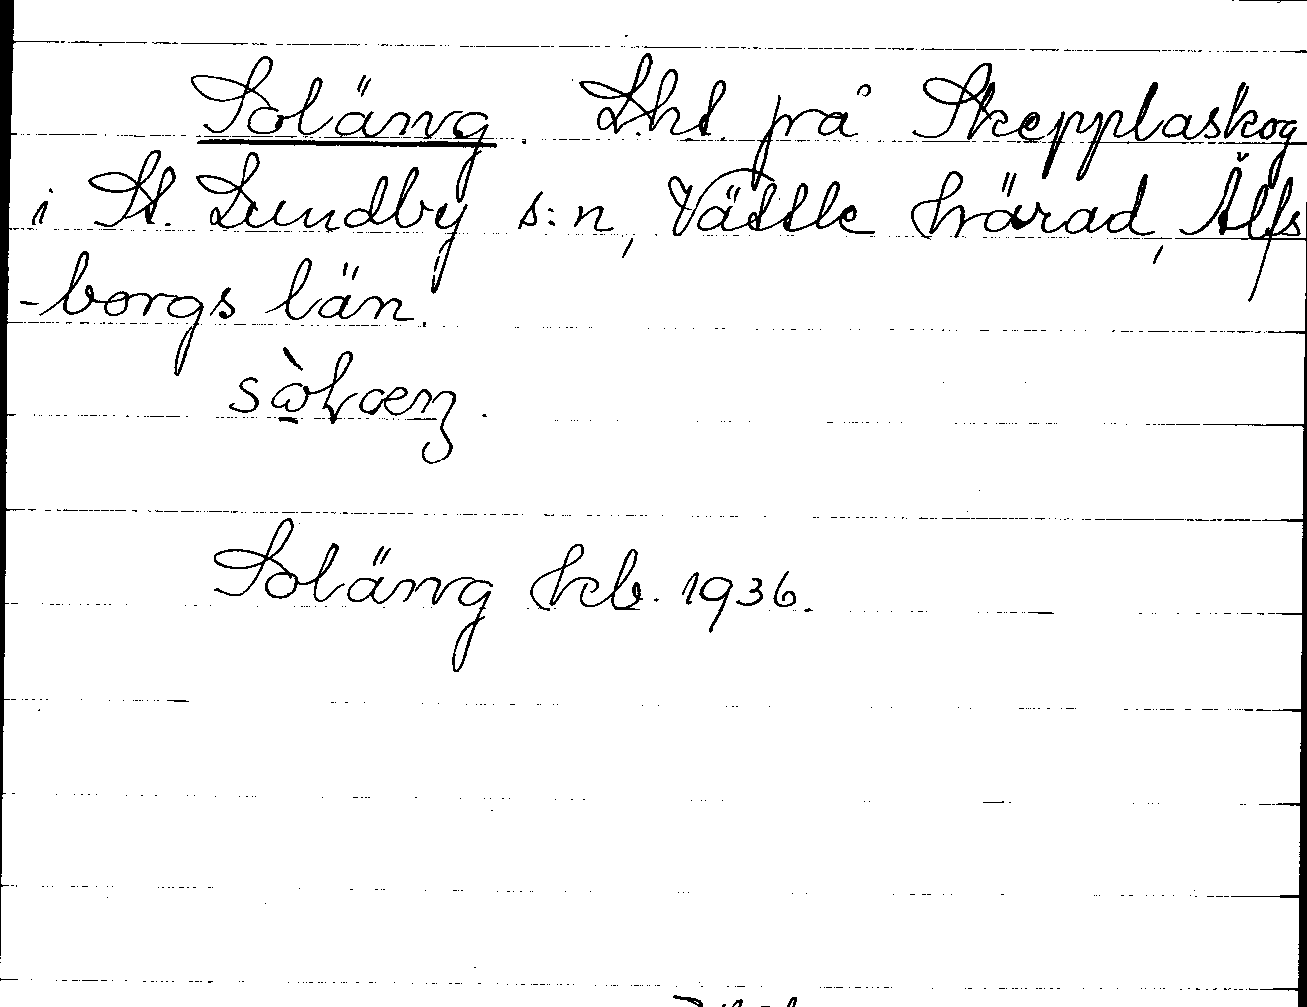 Soläng. Lht. på Skepplaskog
i St. Lundby s:n, Vättle härad, Älfs
-borgs län.
Soläng kb. 1936.